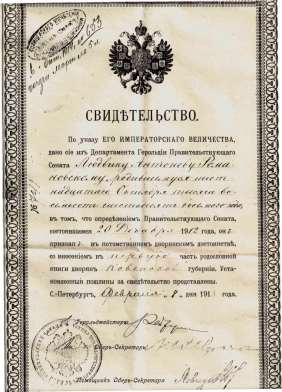 СВИДѢТЕЛЬСТВО.
По указу ЕГО ИМПЕРАТОРСКАГО ВЕЛИЧЕСТВА,
дано сіе изъ Департамента Герольдіи Правительствующаго
Сената Людвику Антонову Рома
новскому, родившемуся шест
надцатаго Октября тысяча во
семьсотъ шестьдесятъ восьмого года,
въ томъ, что опредѣленіемъ Правительствующаго Сената,
состоявшимся 20 Декабря 1912 года, онъ
признанъ въ потомственномъ дворянскомъ достоинствѣ,
со внесеніемъ въ первую часть родословной
книги дворянъ Ковенской губерніи. Установленныя
пошлины за свидѣтельство представлены.
С.-Петербургъ, Февраля 8 дня 191 года.
Герольдмейстеръ
Оберъ-Секретарь
Помощникъ Оберъ-Секретаря